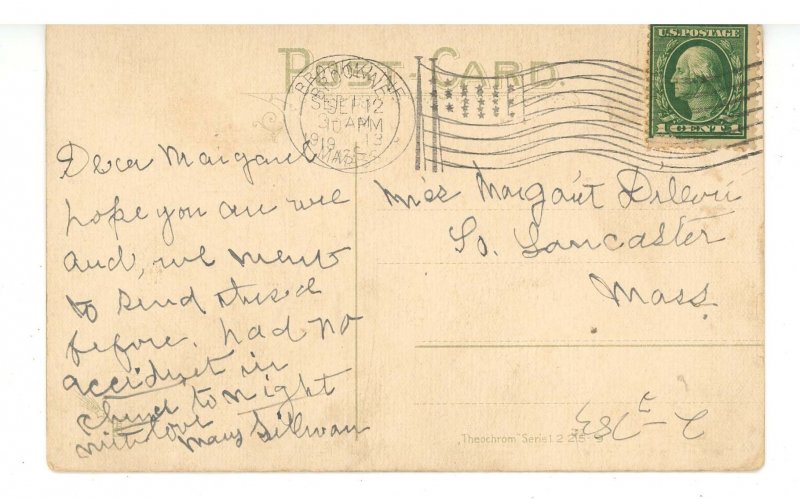 POST-CARD.
U.S. POSTAGE
1 CENT 1
BROOKLINE
SEP 12
1919
MASS.
Dear Margaret
hope you are well
and, we ment
to send these
before. had no
accident in
to night
with love
Mary Sillivan
Miss Margaret
So. Lancaster
Mass.
"Theochrom" Series 1225